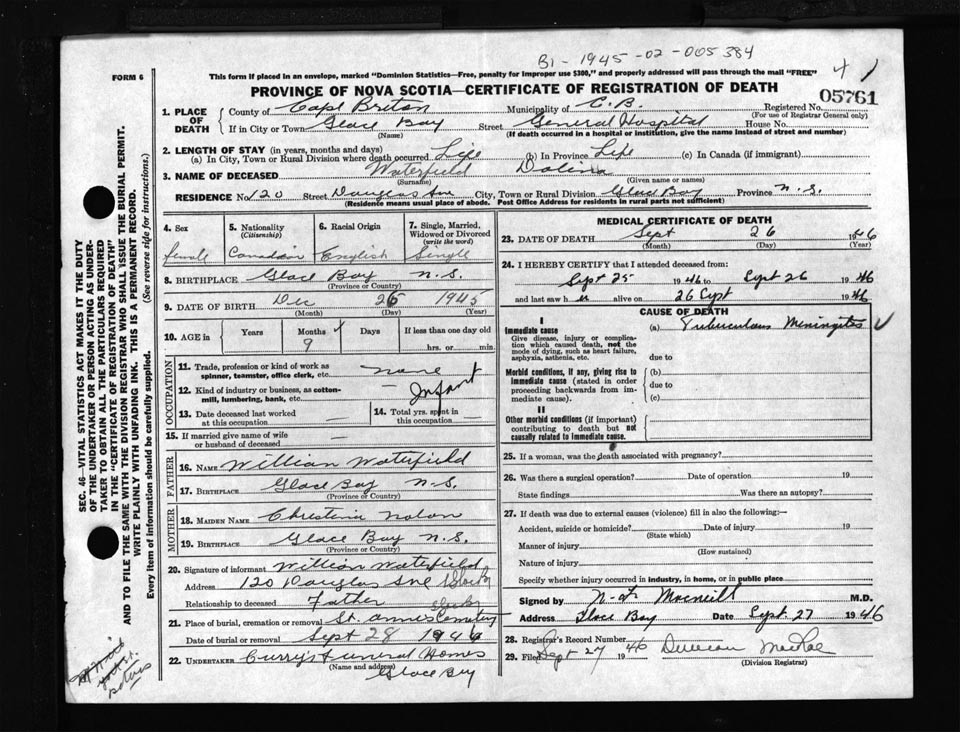 B1 - 1945 - 02 - 005384
FORM 6
This form if placed in an envelope, marked "Dominion Statistics—Free, penalty for improper use $300," and properly addressed will pass through the mail "FREE"
PROVINCE OF NOVA SCOTIA—CERTIFICATE OF REGISTRATION OF DEATH
05761
1. PLACE OF DEATH County of Cape Breton Municipality of C.B. Registered No. (For use of Registrar General only)
If in City or Town Glace Bay (Name) Street General Hospital House No.
(If death occurred in a hospital or institution, give the name instead of street and number)
2. LENGTH OF STAY (in years, months and days)
(a) In City, Town or Rural Division where death occurred Life (b) In Province Life (c) In Canada (if immigrant)
3. NAME OF DECEASED Waterfield (Surname) Dolina (Given name or names)
RESIDENCE No 120 Street Douglas Ave City, Town or Rural Division Glace Bay Province N.S.
(Residence means usual place of abode. Post Office Address for residents in rural parts not sufficient)
4. Sex female
5. Nationality (Citizenship) Canadian
6. Racial Origin English
7. Single, Married, Widowed or Divorced (write the word) Single
8. BIRTHPLACE Glace Bay N.S. (Province or Country)
9. DATE OF BIRTH Dec 26 1945 (Month) (Day) (Year)
10. AGE in Years Months 9 Days If less than one day old hrs. or min.
OCCUPATION
11. Trade, profession or kind of work as spinner, teamster, office clerk, etc. none
12. Kind of industry or business, as cotton-mill, lumbering, bank, etc. Infant
13. Date deceased last worked at this occupation —
14. Total yrs. spent in this occupation —
15. If married give name of wife or husband of deceased —
FATHER
16. NAME William Waterfield
17. BIRTHPLACE Glace Bay N.S. (Province or Country)
MOTHER
18. MAIDEN NAME Christina Nolan
19. BIRTHPLACE Glace Bay N.S. (Province or Country)
20. Signature of informant William Waterfield
Address 120 Douglas Ave
Relationship to deceased Father
21. Place of burial, cremation or removal St. Annes Cemetery
Date of burial or removal Sept 28 1946
22. UNDERTAKER Curry's Funeral Homes
(Name and address) Glace Bay
MEDICAL CERTIFICATE OF DEATH
23. DATE OF DEATH Sept 26 1946 (Month) (Day) (Year)
24. I HEREBY CERTIFY that I attended deceased from:
Sept 25 1946 to Sept 26 1946
and last saw h er alive on 26 Sept 1946
CAUSE OF DEATH
I
Immediate cause
Give disease, injury or complication which caused death, not the mode of dying, such as heart failure, asphyxia, asthenia, etc.
(a) Tuberculous Meningitis
due to
Morbid conditions, if any, giving rise to immediate cause (stated in order proceeding backwards from immediate cause).
(b)
due to
(c)
II
Other morbid conditions (if important) contributing to death but not causally related to immediate cause.
25. If a woman, was the death associated with pregnancy?
26. Was there a surgical operation? Date of operation 19
State findings Was there an autopsy?
27. If death was due to external causes (violence) fill in also the following:—
Accident, suicide or homicide? (State which) Date of injury 19
Manner of injury (How sustained)
Nature of injury
Specify whether injury occurred in industry, in home, or in public place
Signed by Macneill M.D.
Address Glace Bay Date Sept. 27 1946
28. Registrar's Record Number
29. Filed Sept 27 1946 Duncan MacRae
(Division Registrar)
SEC. 46—VITAL STATISTICS ACT MAKES IT THE DUTY
OF THE UNDERTAKER OR PERSON ACTING AS UNDER-
TAKER TO OBTAIN ALL THE PARTICULARS REQUIRED
IN THE "CERTIFICATE OF REGISTRATION OF DEATH"
AND TO FILE THE SAME WITH THE DIVISION REGISTRAR WHO SHALL ISSUE THE BURIAL PERMIT.
WRITE PLAINLY WITH UNFADING INK. THIS IS A PERMANENT RECORD.
Every item of information should be carefully supplied. (See reverse side for instructions.)